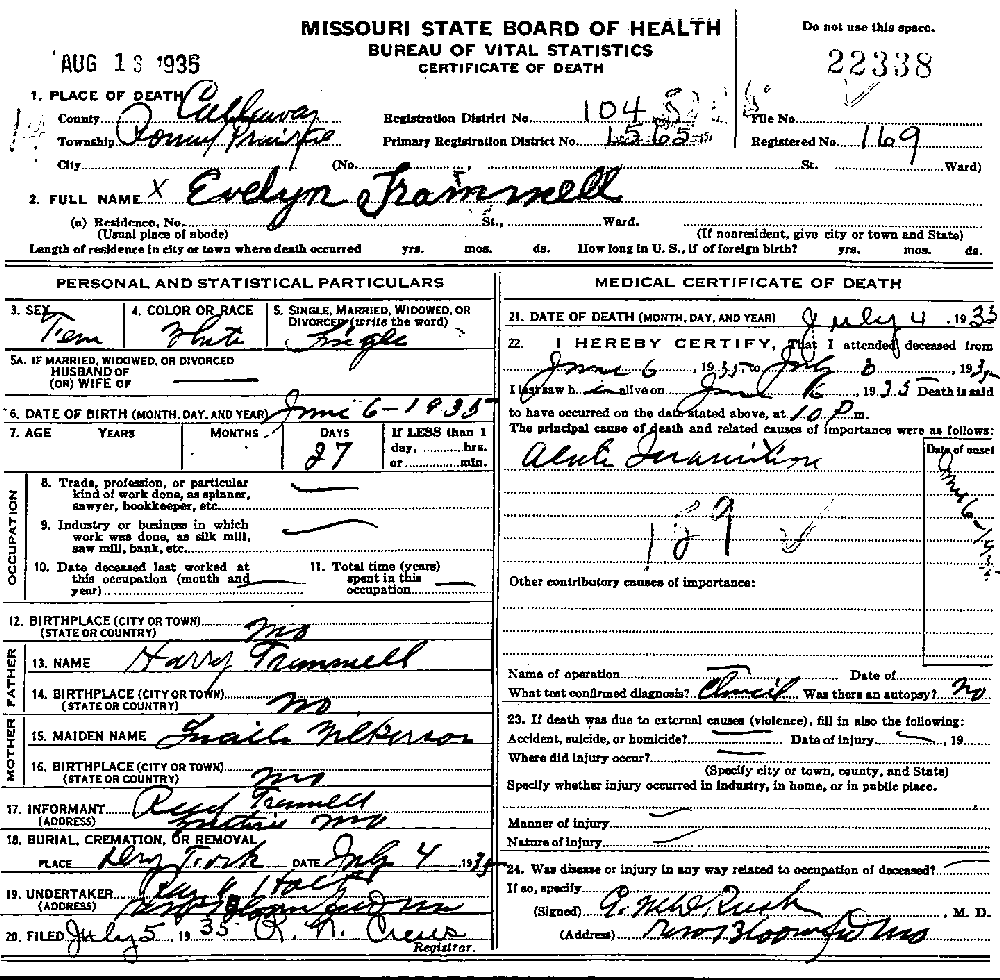 MISSOURI STATE BOARD OF HEALTH
BUREAU OF VITAL STATISTICS
CERTIFICATE OF DEATH
Do not use this space.
AUG 13 1935
22338
1. PLACE OF DEATH
County Callaway Registration District No. 104 File No.
Township Primary Registration District No. 1565 Registered No. 169
City (No. St. Ward)
2. FULL NAME X Evelyn Trammell
(a) Residence, No. St., Ward.
(Usual place of abode) (If nonresident, give city or town and State)
Length of residence in city or town where death occurred yrs. mos. ds. How long in U. S., if of foreign birth? yrs. mos. ds.
PERSONAL AND STATISTICAL PARTICULARS
3. SEX Fem 4. COLOR OR RACE White 5. SINGLE, MARRIED, WIDOWED, OR DIVORCED (write the word) Single
5A. IF MARRIED, WIDOWED, OR DIVORCED
HUSBAND OF
(OR) WIFE OF
6. DATE OF BIRTH (MONTH, DAY, AND YEAR) June 6 - 1935
7. AGE YEARS MONTHS DAYS If LESS than 1
27 day, hrs.
or min.
OCCUPATION
8. Trade, profession, or particular
kind of work done, as spinner,
sawyer, bookkeeper, etc.
9. Industry or business in which
work was done, as silk mill,
saw mill, bank, etc.
10. Date deceased last worked at
this occupation (month and
year)
11. Total time (years)
spent in this
occupation
12. BIRTHPLACE (CITY OR TOWN)
(STATE OR COUNTRY) Mo
FATHER
13. NAME Harry Trammell
14. BIRTHPLACE (CITY OR TOWN)
(STATE OR COUNTRY) Mo.
MOTHER
15. MAIDEN NAME Wilkerson
16. BIRTHPLACE (CITY OR TOWN)
(STATE OR COUNTRY) Mo
17. INFORMANT Trammell
(ADDRESS) Guthrie Mo
18. BURIAL, CREMATION, OR REMOVAL
PLACE Dry Fork DATE July 4 1935
19. UNDERTAKER Holt
(ADDRESS) New Bloomfield Mo
20. FILED July 5 1935
Registrar.
MEDICAL CERTIFICATE OF DEATH
21. DATE OF DEATH (MONTH, DAY, AND YEAR) July 4, 1935
22. I HEREBY CERTIFY, That I attended deceased from
June 6, 1935 to July 3, 1935
I last saw h alive on June 16, 1935 Death is said
to have occurred on the date stated above, at 10 P. m.
The principal cause of death and related causes of importance were as follows:
Date of onset
Acute Inanition
June 6-1935
189
Other contributory causes of importance:
Name of operation Date of
What test confirmed diagnosis? Clinical Was there an autopsy? no
23. If death was due to external causes (violence), fill in also the following:
Accident, suicide, or homicide? Date of injury , 19
Where did injury occur?
(Specify city or town, county, and State)
Specify whether injury occurred in industry, in home, or in public place.
Manner of injury
Nature of injury
24. Was disease or injury in any way related to occupation of deceased?
If so, specify
(Signed) , M. D.
(Address) New Bloomfield Mo